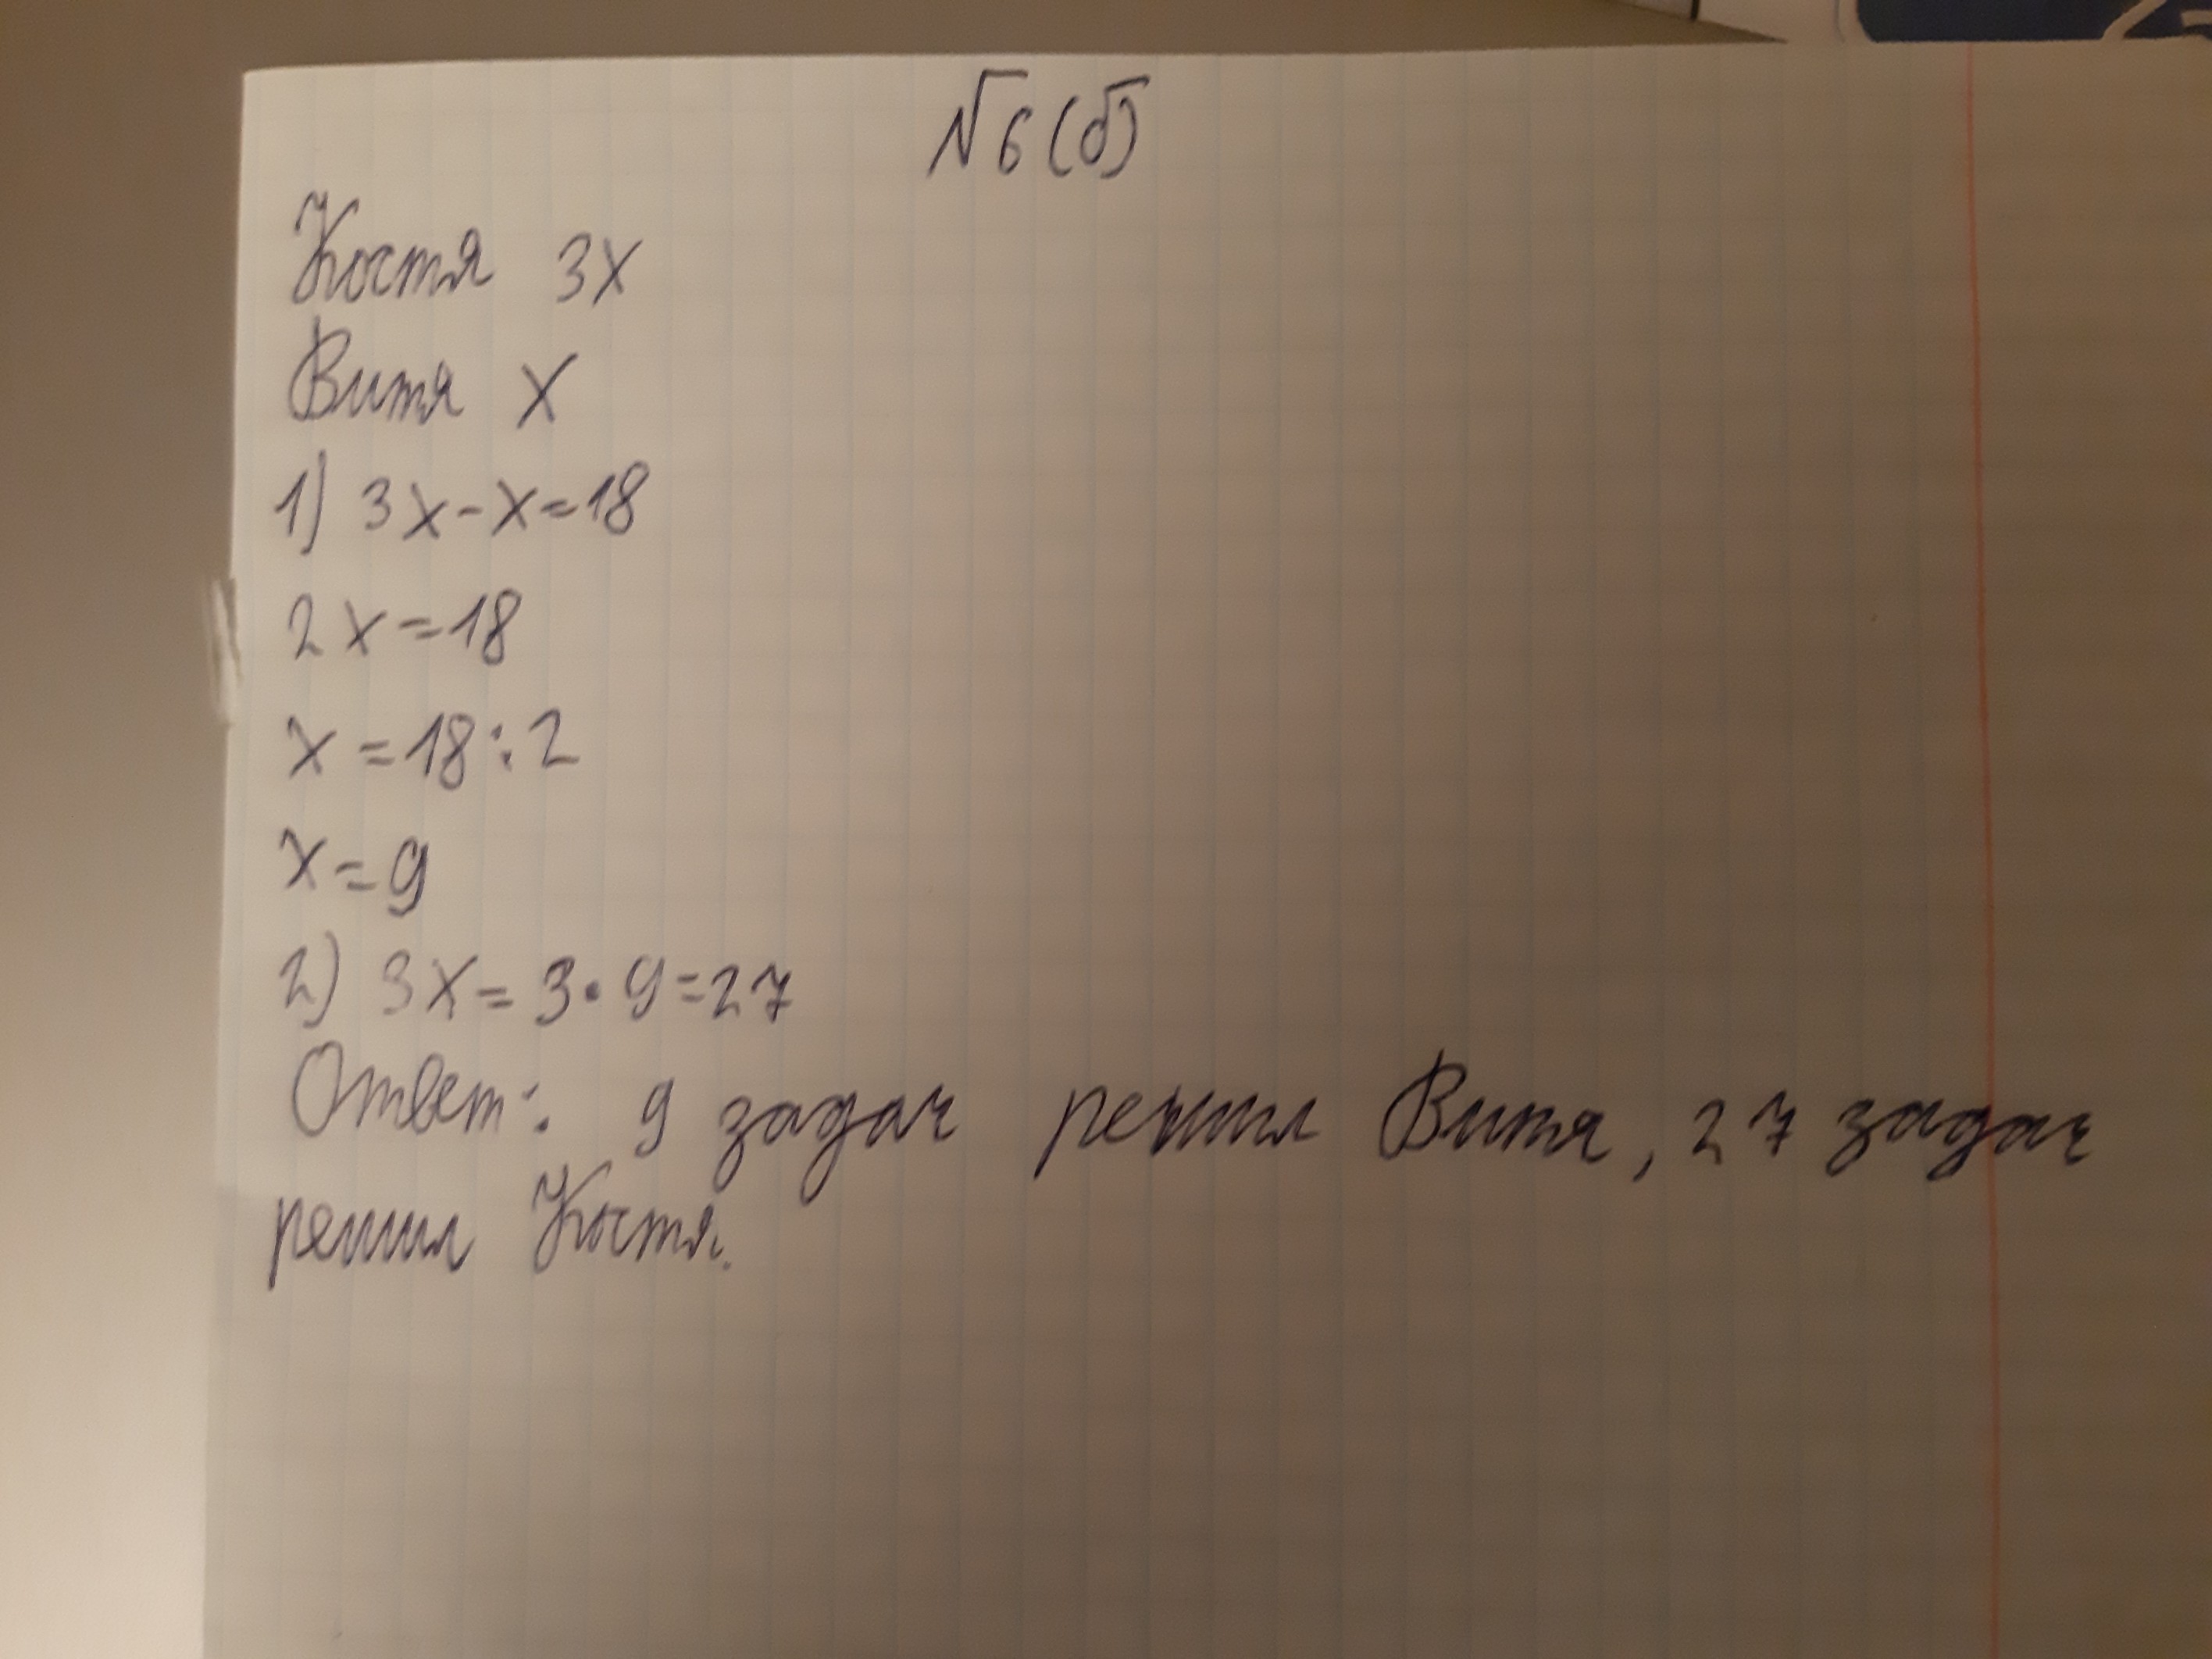 №6(б)
Костя 3х
Витя х
1) 3х-х=18
2х=18
х=18:2
х=9
2) 3х=3·9=27
Ответ: 9 задач решил Витя, 27 задач
решил Костя.